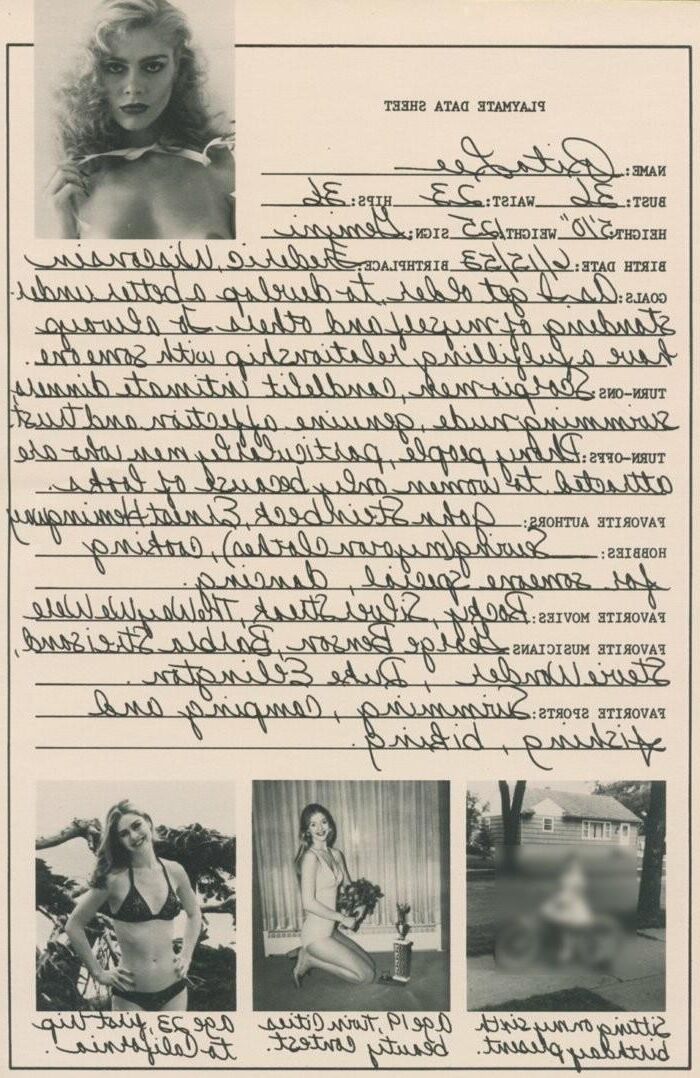 PLAYMATE DATA SHEET
NAME: Rita Lee
BUST: 36 WAIST: 23 HIPS: 36
HEIGHT: 5'10" WEIGHT: 125 SIGN: Gemini
BIRTH DATE: 6/15/53 BIRTHPLACE: Frederic, Wisconsin
GOALS: As I get older, to develop a better under
standing of myself and others. To always
have a fulfilling relationship with someone.
TURN-ONS: Scorpio men, candlelit intimate dinners,
swimming nude, genuine affection and trust.
TURN-OFFS: Phony people, particularly men who are
attracted to women only because of looks.
FAVORITE AUTHORS: John Steinbeck, Ernest Hemingway
HOBBIES: Sewing (my own clothes), cooking
for someone special, dancing.
FAVORITE MOVIES: Rocky, Silver Streak, The Way We Were
FAVORITE MUSICIANS: George Benson, Barbra Streisand,
Stevie Wonder, Duke Ellington.
FAVORITE SPORTS: Swimming, camping and
fishing, biking.
Sitting on my sixth
birthday present.
Age 19, Twin Cities
beauty contest.
age 23, first trip
to California.